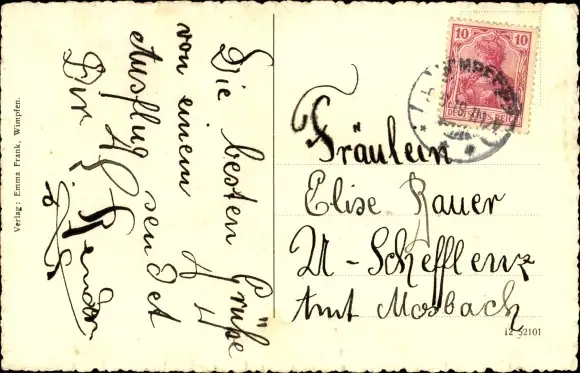 Die besten Grüße
von einem
Ausflug sendet
Dir
Fräulein
Elise Bauer
U-Schefflenz
Amt Mosbach
10 10
DEUTSCHES REICH
WIMPFEN
Verlag: Emma Frank, Wimpfen.
12 52101